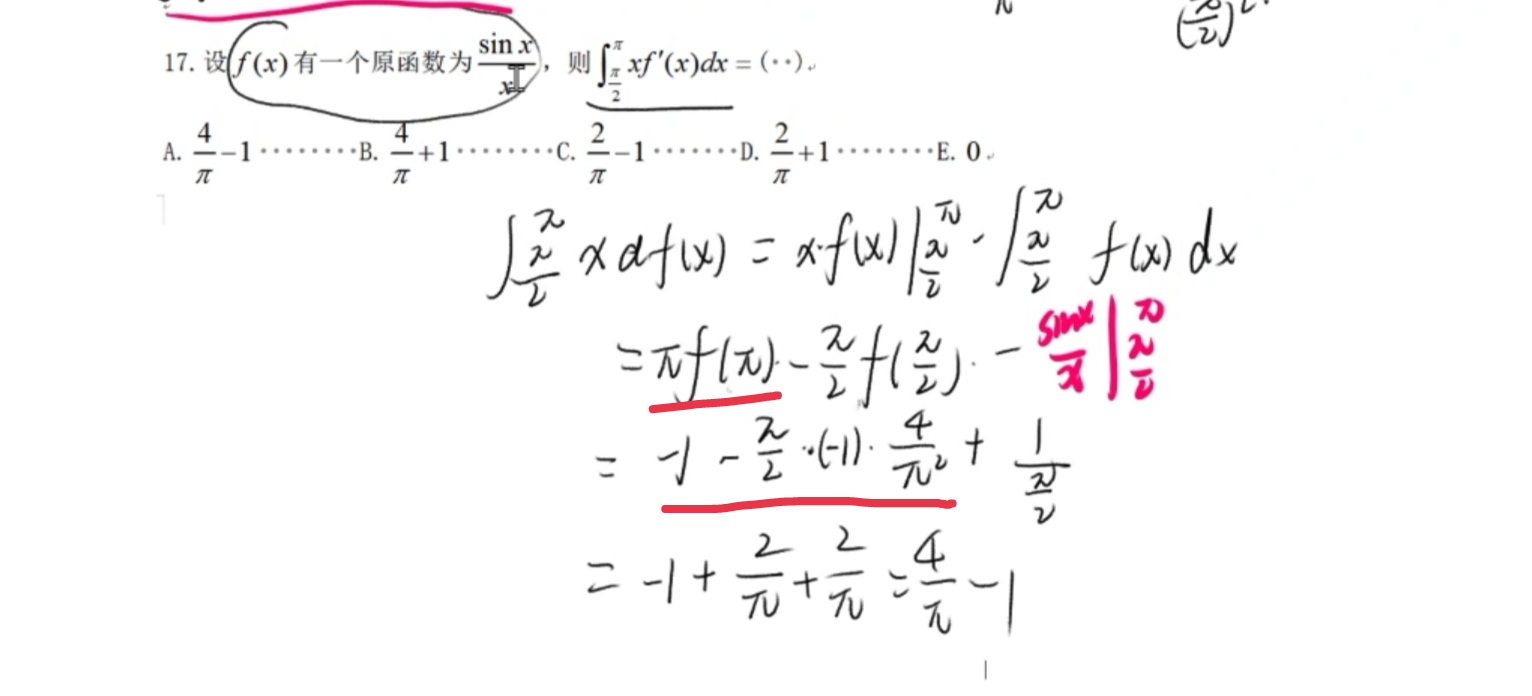 π
(π/2)²
17. 设 f(x) 有一个原函数为 sin x/x，则 ∫_{π/2}^{π} xf′(x)dx = (··).
A. 4/π−1 ········ B. 4/π+1 ········ C. 2/π−1 ······· D. 2/π+1 ········ E. 0
∫_{π/2}^{π} x df(x) = x·f(x)|_{π/2}^{π} - ∫_{π/2}^{π} f(x) dx
= πf(π) - π/2 f(π/2) - sinx/x |_{π/2}^{π}
= -1 - π/2 ·(-1)· 4/π² + 1/(π/2)
= -1 + 2/π + 2/π = 4/π - 1